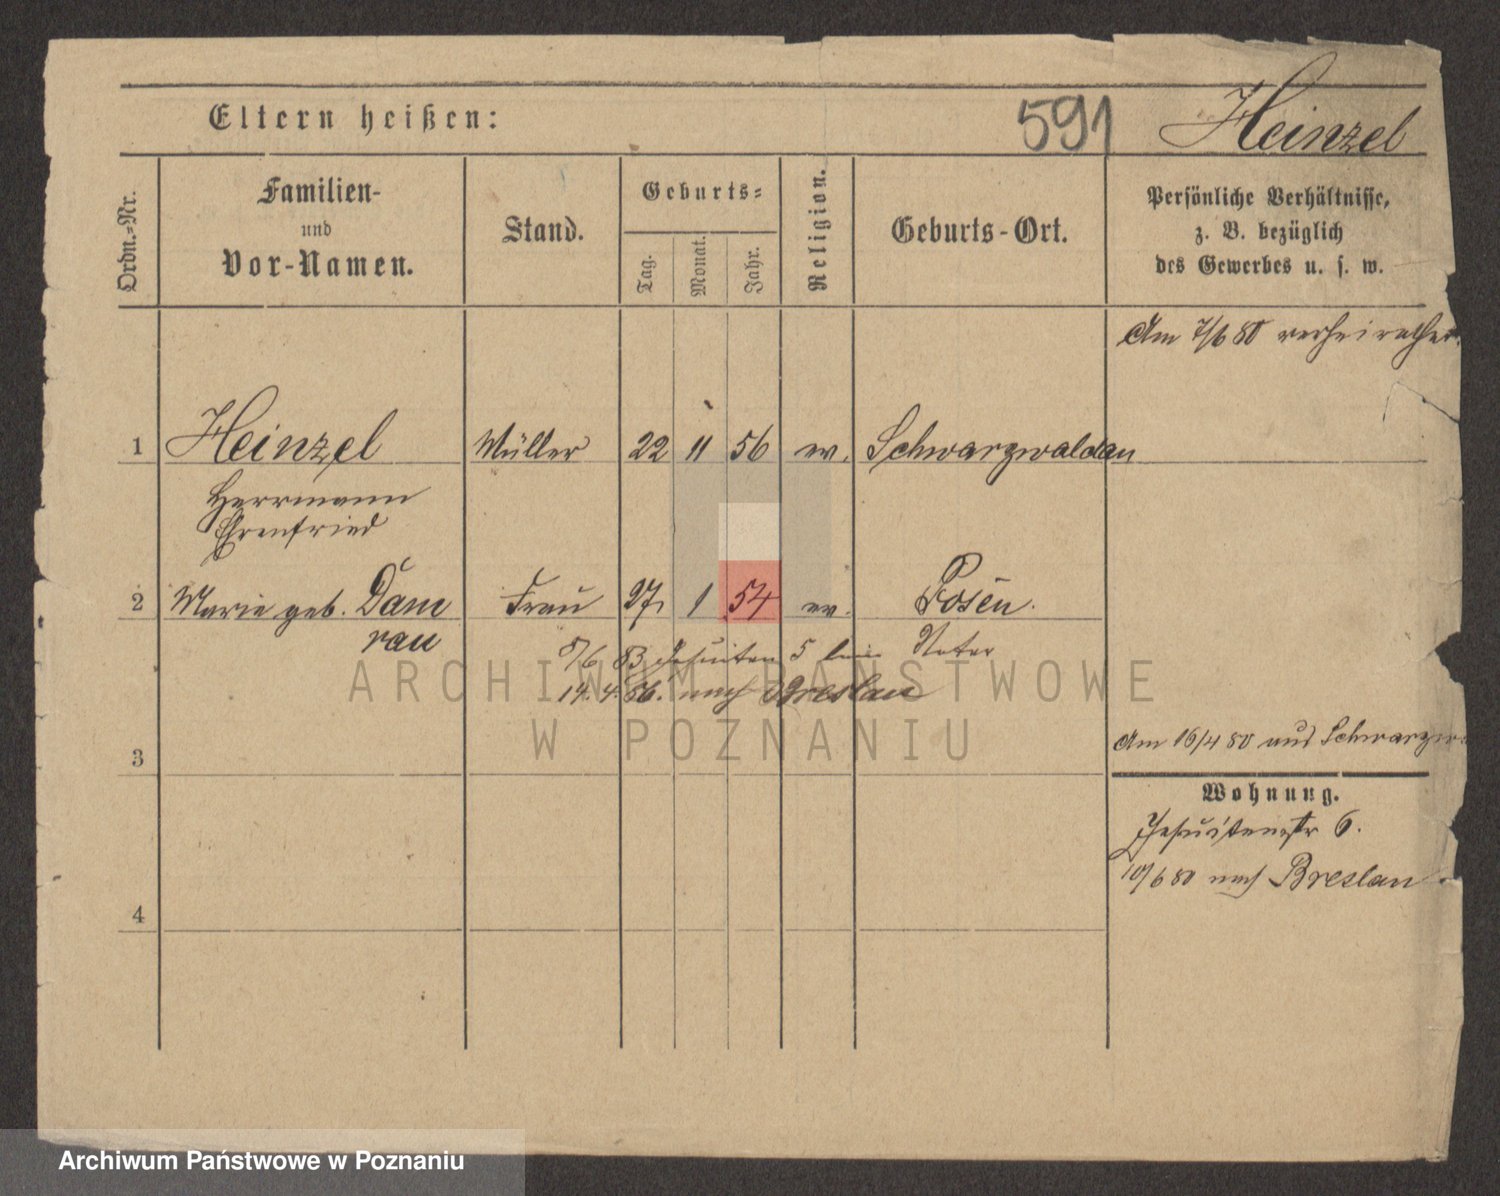 Eltern heißen:
591
Heinzel
Ordn.-Nr.
Familien-
und
Vor-Namen.
Stand.
Geburts-
Tag.
Monat.
Jahr.
Religion.
Geburts-Ort.
Persönliche Verhältnisse,
z. B. bezüglich
des Gewerbes u. s. w.
Am 7/6 80 verheirathet.
1 Heinzel Müller 22 11 56 ev. Schwarzwaldau
Herrmann
Ehrenfried
2 Marie geb. Dam Frau 27 1 54 ev. Posen.
rau
5/6 83 Jesuiten 5 bei Vater
14. 4. 86. nach Breslau
ARCHIWUM PAŃSTWOWE
W POZNANIU
Am 16/4 80 aus
3
Wohnung.
Jesuitenstr 6.
10/6 80 nach Breslau
4
Archiwum Państwowe w Poznaniu